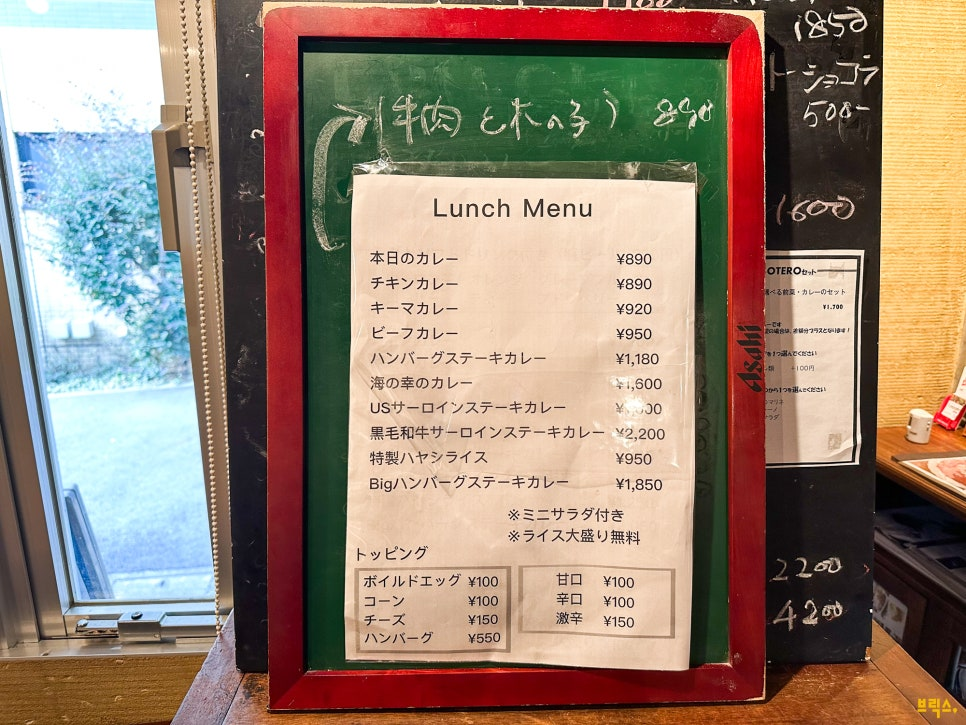 1850
ショコラ
500-
(牛肉と木の子) 890
1600
Lunch Menu
本日のカレー ¥890
チキンカレー ¥890
キーマカレー ¥920
ビーフカレー ¥950
ハンバーグステーキカレー ¥1,180
海の幸のカレー ¥1,600
USサーロインステーキカレー
黒毛和牛サーロインステーキカレー ¥2,200
特製ハヤシライス ¥950
Bigハンバーグステーキカレー ¥1,850
※ミニサラダ付き
※ライス大盛り無料
トッピング
ボイルドエッグ ¥100
コーン ¥100
チーズ ¥150
ハンバーグ ¥550
甘口 ¥100
辛口 ¥100
激辛 ¥150
Asahi
OTEROセット
カレーのセット
¥1,700
+100円
2200
4200
브릭스.